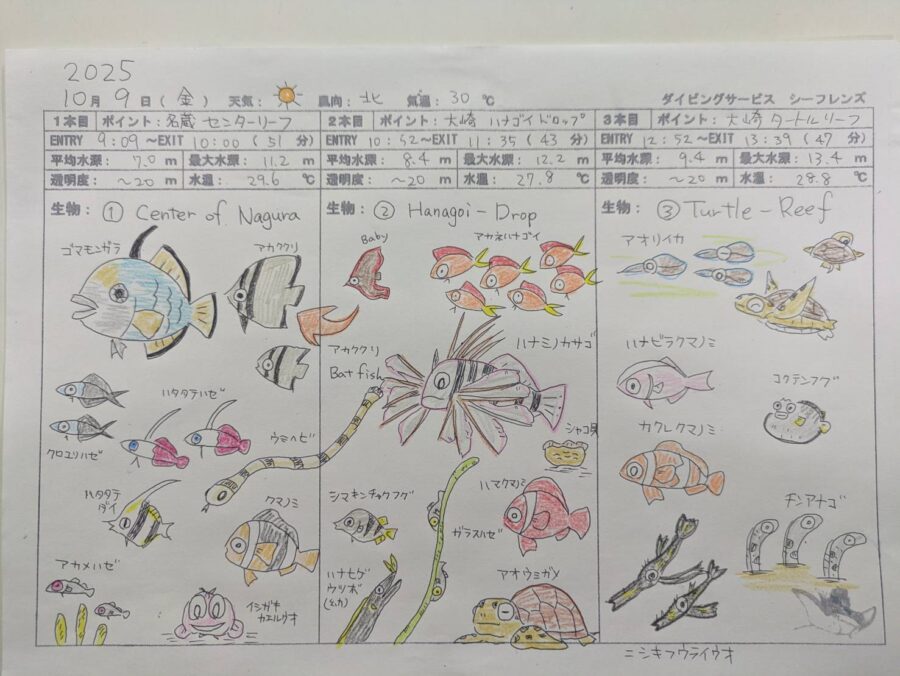 2025
10月 9日(金) 天気: 風向: 北 気温: 30 ℃ ダイビングサービス シーフレンズ
1本目 ポイント: 名蔵 センターリーフ
ENTRY 9:09 ～EXIT 10:00 (51 分)
平均水深: 7.0 m 最大水深: 11.2 m
透明度: ～20 m 水温: 29.6 ℃
生物: ① Center of Nagura
ゴマモンガラ
アカククリ
ハタタテハゼ
クロユリハゼ
ウミヘビ
ハタタテ
ダイ
クマノミ
アカメハゼ
イシガキ
カエルウオ
2本目 ポイント: 大崎 ハナゴイドロップ
ENTRY 10:52 ～EXIT 11:35 (43 分)
平均水深: 8.4 m 最大水深: 12.2 m
透明度: ～20 m 水温: 27.8 ℃
生物: ② Hanagoi-Drop
Baby
アカネハナゴイ
アカククリ
Bat fish
ハナミノカサゴ
シャコ貝
シマキンチャクフグ
ハマクマノミ
ガラスハゼ
ハナヒゲ
ウツボ
(幼)
アオウミガメ
3本目 ポイント: 大崎 タートルリーフ
ENTRY 12:52 ～EXIT 13:39 (47 分)
平均水深: 9.4 m 最大水深: 13.4 m
透明度: ～20 m 水温: 28.8 ℃
生物: ③ Turtle-Reef
アオリイカ
ハナビラクマノミ
コクテンフグ
カクレクマノミ
チンアナゴ
ニシキフウライウオ